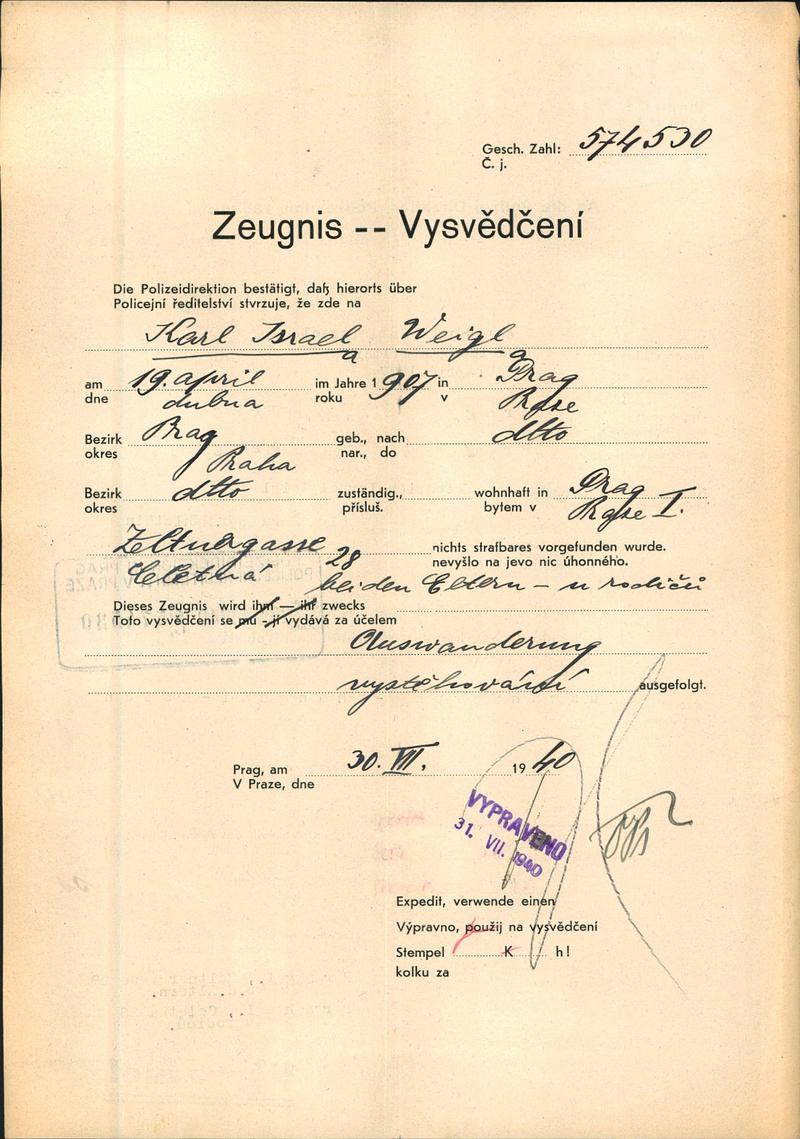 Gesch. Zahl: 574530
Č. j.
Zeugnis -- Vysvědčení
Die Polizeidirektion bestätigt, daß hierorts über
Policejní ředitelství stvrzuje, že zde na
Karl Israel Weigl
a a
am 19. april im Jahre 1907 in Prag
dne dubna roku v Praze
Bezirk Prag geb., nach dtto
okres Praha nar., do
Bezirk dtto zuständig., wohnhaft in Prag
okres přísluš. bytem v Praze I.
Zeltnergasse 28 nichts strafbares vorgefunden wurde.
nevyšlo na jevo nic úhonného.
Celetná bei den Eltern – u rodičů
Dieses Zeugnis wird ihm — ihr zwecks
Toto vysvědčení se mu - jí vydává za účelem
Auswanderung
vystěhování ausgefolgt.
Prag, am 30. VII. 1940
V Praze, dne
VYPRAVENO
31. VII. 1940
Expedit, verwende einen
Výpravno, použij na vysvědčení
Stempel K h!
kolku za